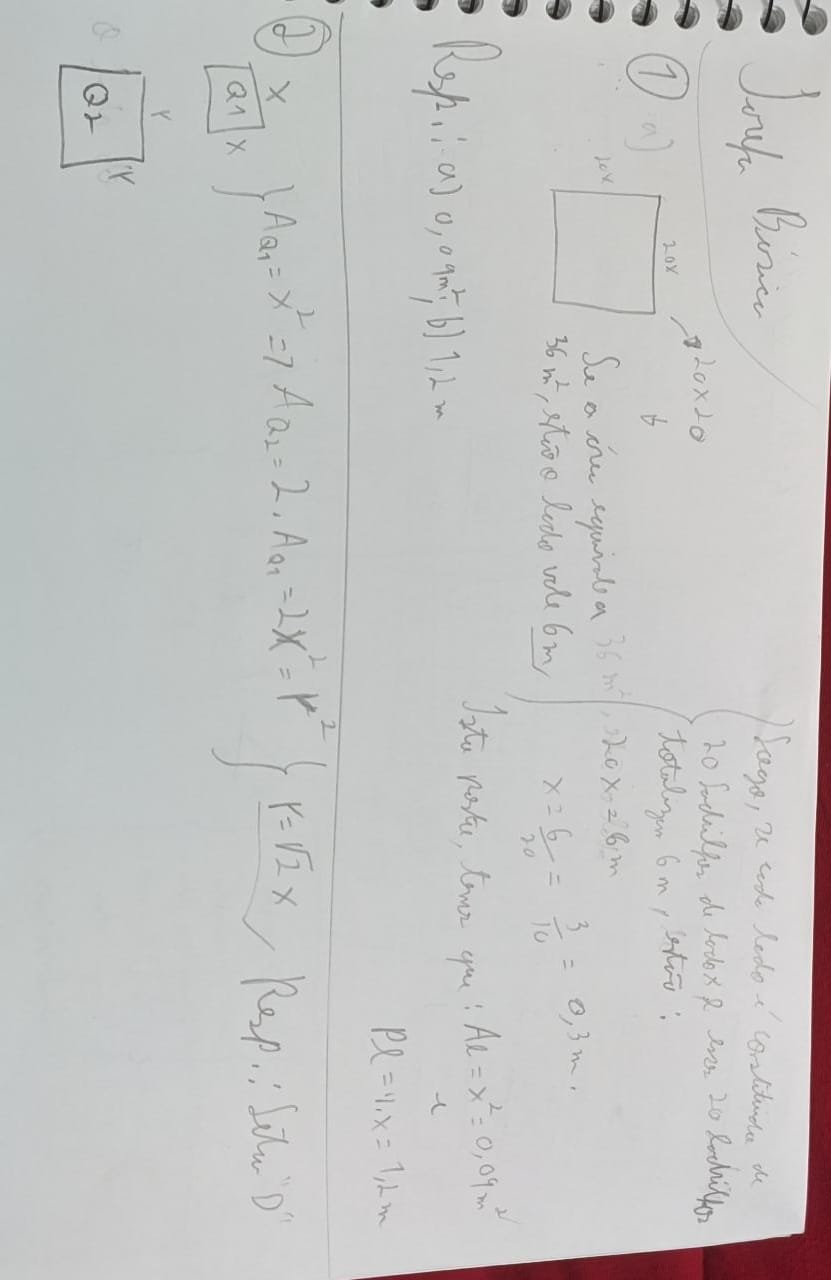 Tarefa Básica
① a)
20x
20x
20x20
Se a área equivale a 36m², 20x = 6m
36m², então o lado vale 6m
Logo, se cada lado é constituído de
20 ladrilhos de lado x e esses 20 ladrilhos
totalizam 6m, então:
x = 6/20 = 3/10 = 0,3m.
Isto posto, temos que: Al = x² = 0,09m²
e
Pl = 4.x = 1,2m
Resp.: a) 0,09m²; b) 1,2m
②
x
Q1 x
} AQ1 = x² => AQ2 = 2.AQ1 = 2x² = Y² } Y = √2 x
Resp.: Letra "D"
Y
Q2 Y